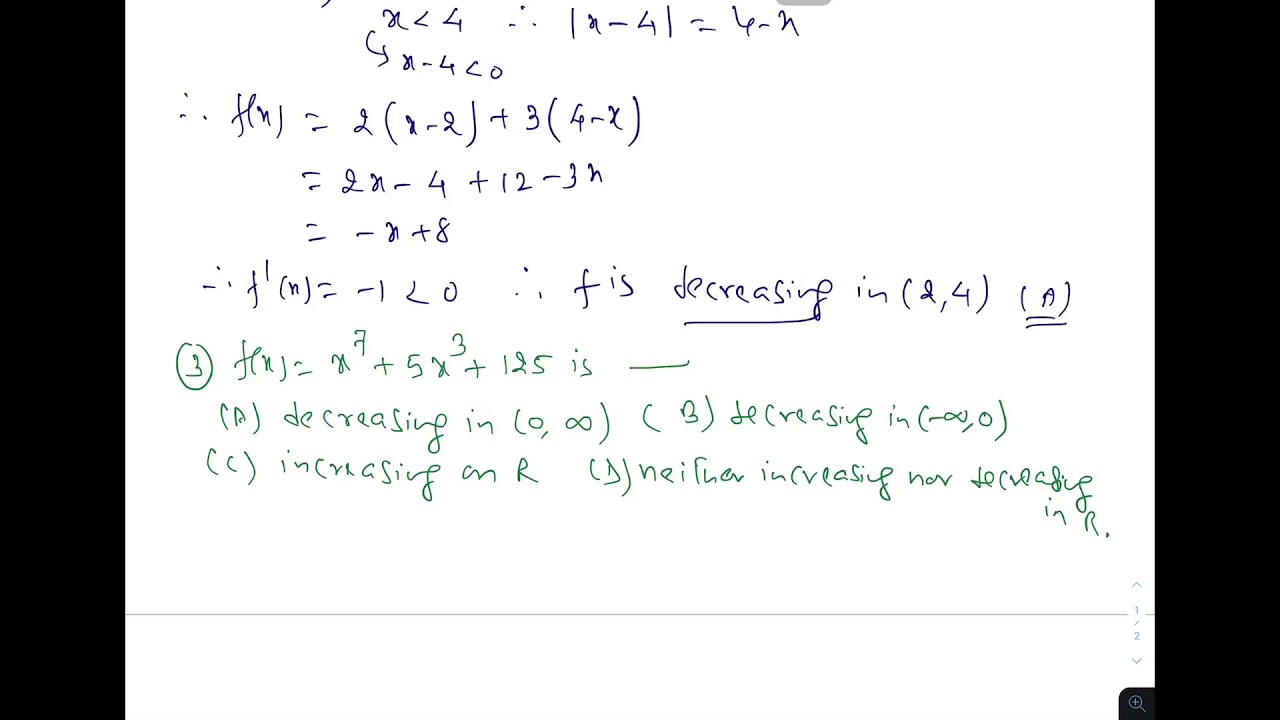 x < 4 ∴ |x-4| = 4-x
↳ x-4<0
∴ f(x) = 2(x-2)+3(4-x)
= 2x-4+12-3x
= -x+8
∴ f'(x)= -1 < 0 ∴ f is decreasing in (2,4) (A)
③ f(x)= x⁷+5x³+125 is —
(A) decreasing in (0, ∞) (B) decreasing in (-∞,0)
(C) increasing on R (D) neither increasing nor decreasing
in R.
1
/
2